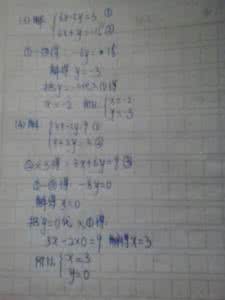 (3)解 {6x-5y=3 ①
6x+y=-15 ②
①-②得: -6y=18
解得 y=-3
把y=-3代入①得
x=-2 所以 {x=-2
y=-3
(4)解 {3x-2y=9 ①
x+2y=3 ②
②×3得: 3x+6y=9 ③
①-③得: -8y=0
把y=0代入①得:
3x-2×0=9 解得x=3
所以 {x=3
y=0